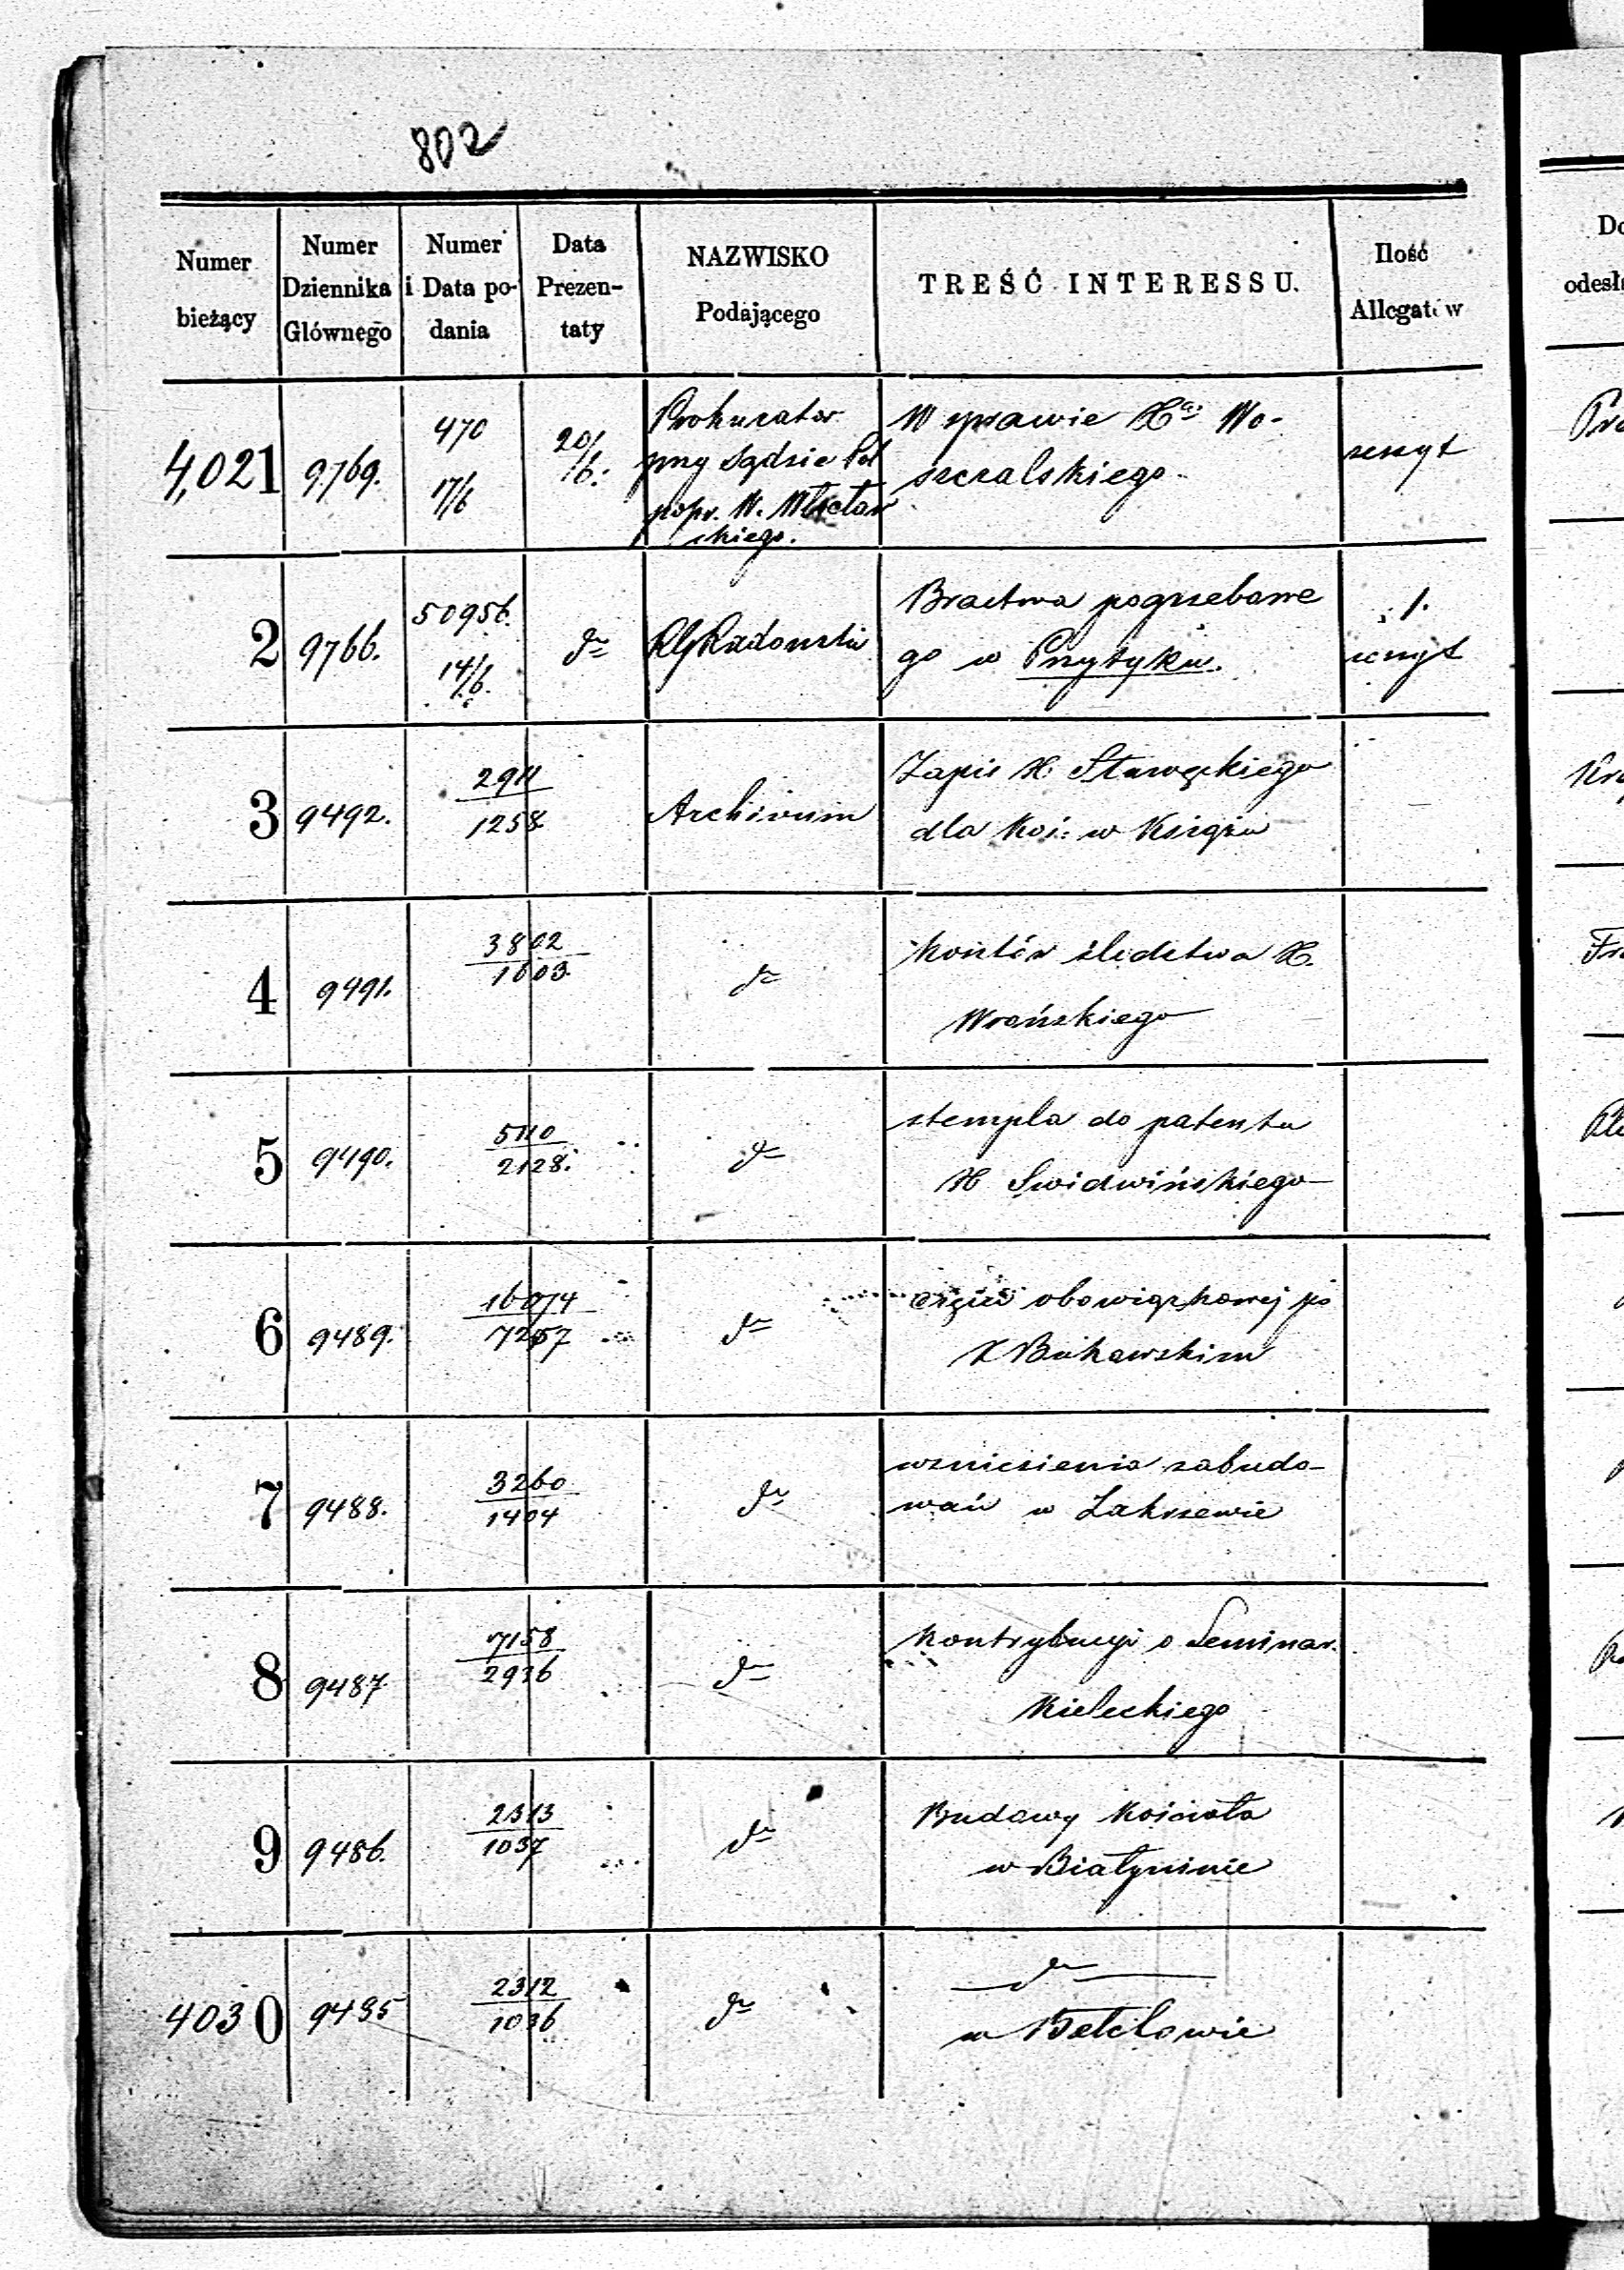 802
Numer bieżący
Numer Dziennika Głównego
Numer i Data podania
Data Prezentaty
NAZWISKO Podającego
TREŚĆ INTERESSU.
Ilość Allegatów
4,021 9769. 470 17/6 20/6. Prokurator
przy Sądzie Pol
popr. W.
skiego.
W sprawie Xa Wo-
szczalskiego
zeszyt
2 9766. 50956. 14/6. dto RG Radomski
Bractwa pogrzebowe
go w Przytyku.
1.
zeszyt
3 9492. 2911
1258 Archivum
Zapis X. Stawęckiego
dla Koś: w Książu
4 9491. 3802
1603. dto
Kosztów śledztwa X.
Wrońskiego
5 9490. 5110
2128. dto
stempla do patentu
X Swidwińskiego
6 9489. 16074
7257 dto
części obowiązkowej po
X Bukowskim
7 9488. 3260
1404 dto
wzniesienia zabudo-
wań w Zakrzewie
8 9487 7158
2936 dto
Kontrybucyi o Seminar.
Kieleckiego
9 9486. 2313
1037 dto
Budowy Kościoła
w Białyninie
4030 9485 2312
1036 dto
dto
w